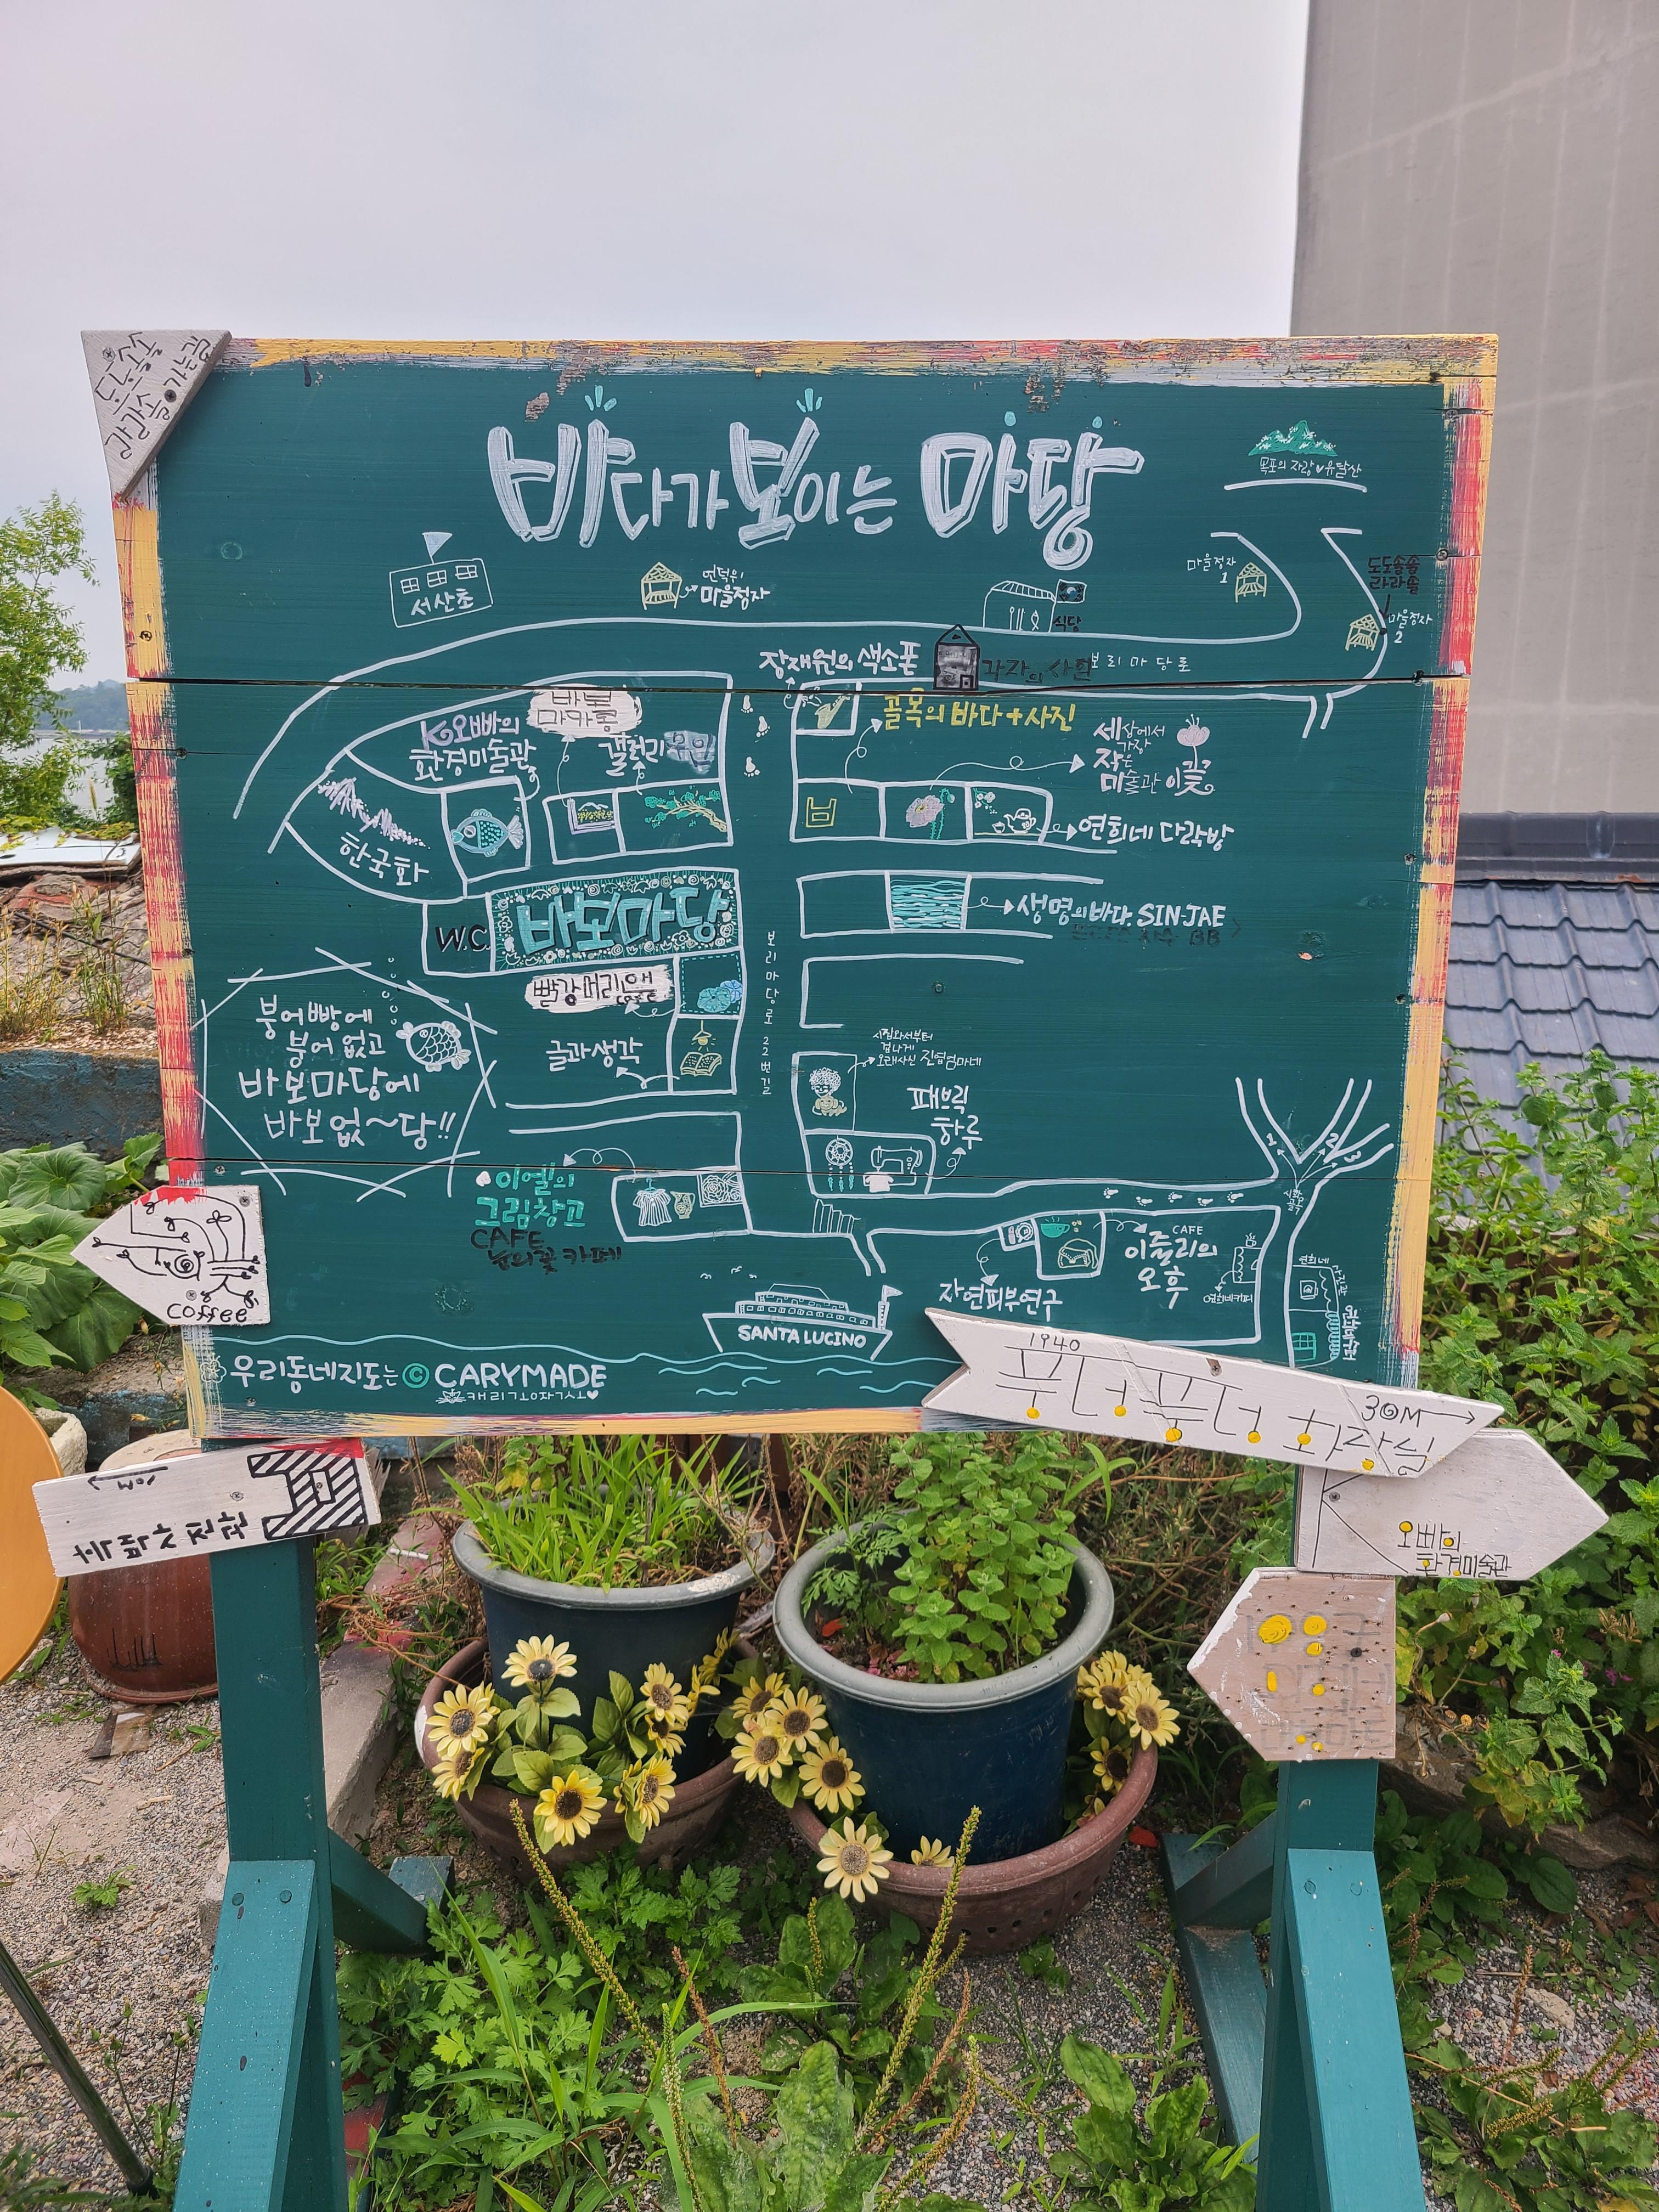 도도솔솔
라라솔
바다가 보이는 마당
목포의 자랑♥유달산
서산초
언덕위
마을정자
식당
마을정자
1
도도솔솔
라라솔
마을정자
2
장재원의 색소폰
보리마당로
K오빠의
환경미술관
바보
마카롱
갤러리
골목의 바다+사진
세상에서
가장
작은
미술관 이꽃
한국화
연희네 다락방
W.C
바보마당
생명의바다 SIN-JAE
빨강머리앤
cafe
보리마당로 22번길
붕어빵에
붕어 없고
바보마당에
바보없~당!!
글과생각
시집와서부터
겁나게
오래사신 진엽엄마네
패브릭
하루
이엘의
그림창고
CAFE
눈의꽃 카페
1
2
3
CAFE
이쥴리의
오후
자연피부연구
연희네
SANTA LUCINO
coffee
우리동네지도는 © CARYMADE
1940
30M
10M
K
오빠의
환경미술관